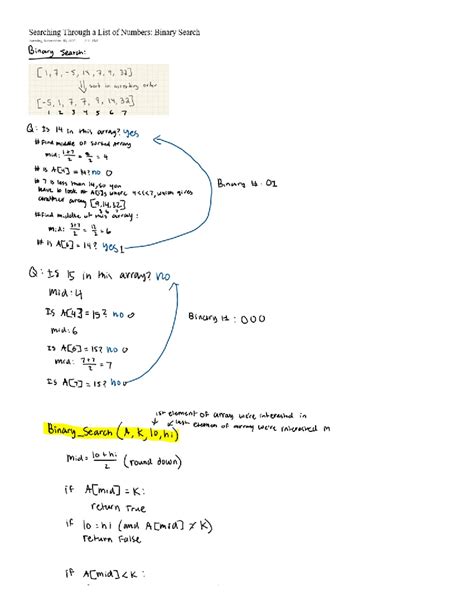 Searching Through a List of Numbers: Binary Search
Binary Search:
[1, 7, -5, 14, 7, 9, 32]
sort in ascending order
[-5, 1, 7, 7, 9, 14, 32]
1 2 3 4 5 6 7
Q: Is 14 in this array? yes
# Find middle of sorted array
mid: 1+7/2 = 8/2 = 4
# is A[4] = 14? no 0
# 7 is less than 14, so you
have to look at A[i] where 4<i<=7, which gives
another array [9, 14, 32]
# find middle of this array:
mid: 5+7/2 = 12/2 = 6
# is A[6] = 14? yes 1
Binary #: 01
Q: Is 15 in this array? no
mid: 4
Is A[4] = 15? no 0
mid: 6
Is A[6] = 15? no 0
mid: 7+7/2 = 7
Is A[7] = 15? no 0
Binary #: 000
1st element of array we're interested in
last element of array we're interested in
Binary_Search (A, K, lo, hi)
mid = lo+hi/2 (round down)
if A[mid] = K:
return True
if lo = hi (and A[mid] ≠ K)
return False
if A[mid] < K: